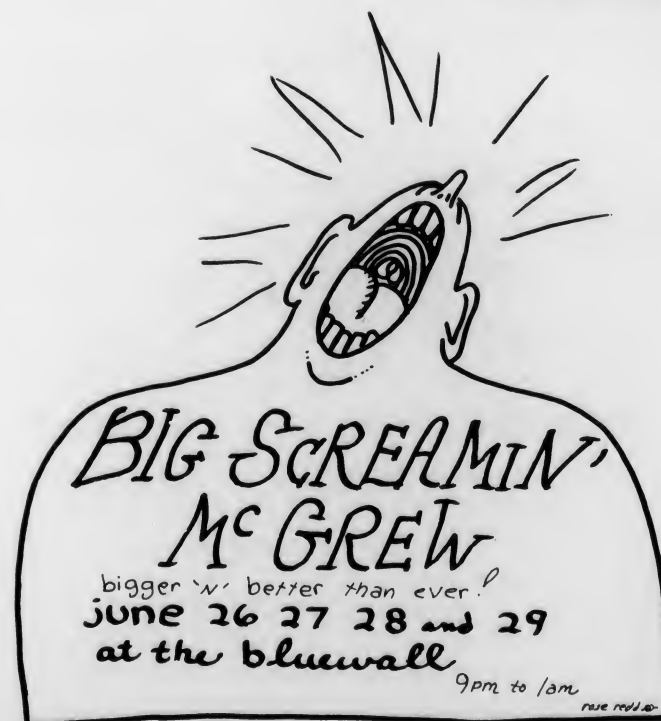 BIG SCREAMIN'
Mc GREW
bigger 'N' better than ever!
june 26 27 28 and 29
at the bluewall
9pm to 1am
rose